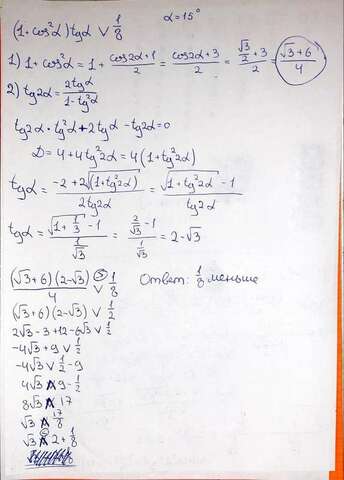 (1+cos²α)tgα ∨ 1/8 α=15°
1) 1+cos²α = 1 + (cos2α+1)/2 = (cos2α+3)/2 = (√3/2+3)/2 = (√3+6)/4
2) tg2α = 2tgα/(1-tg²α)
tg2α·tg²α+2tgα-tg2α=0
D = 4+4tg²2α = 4(1+tg²2α)
tgα = (-2+2√(1+tg²2α))/(2tg2α) = (√(1+tg²2α) -1)/tg2α
tgα = (√(1+1/3) -1)/(1/√3) = (2/√3 -1)/(1/√3) = 2-√3
(√3+6)(2-√3)/4 ∨ 1/8 Ответ: 1/8 меньше
(√3+6)(2-√3) ∨ 1/2
2√3-3+12-6√3 ∨ 1/2
-4√3+9 ∨ 1/2
-4√3 ∨ 1/2-9
4√3 ∧ 9-1/2
8√3 ∧ 17
√3 ∧ 17/8
√3 ∧ 2+1/8